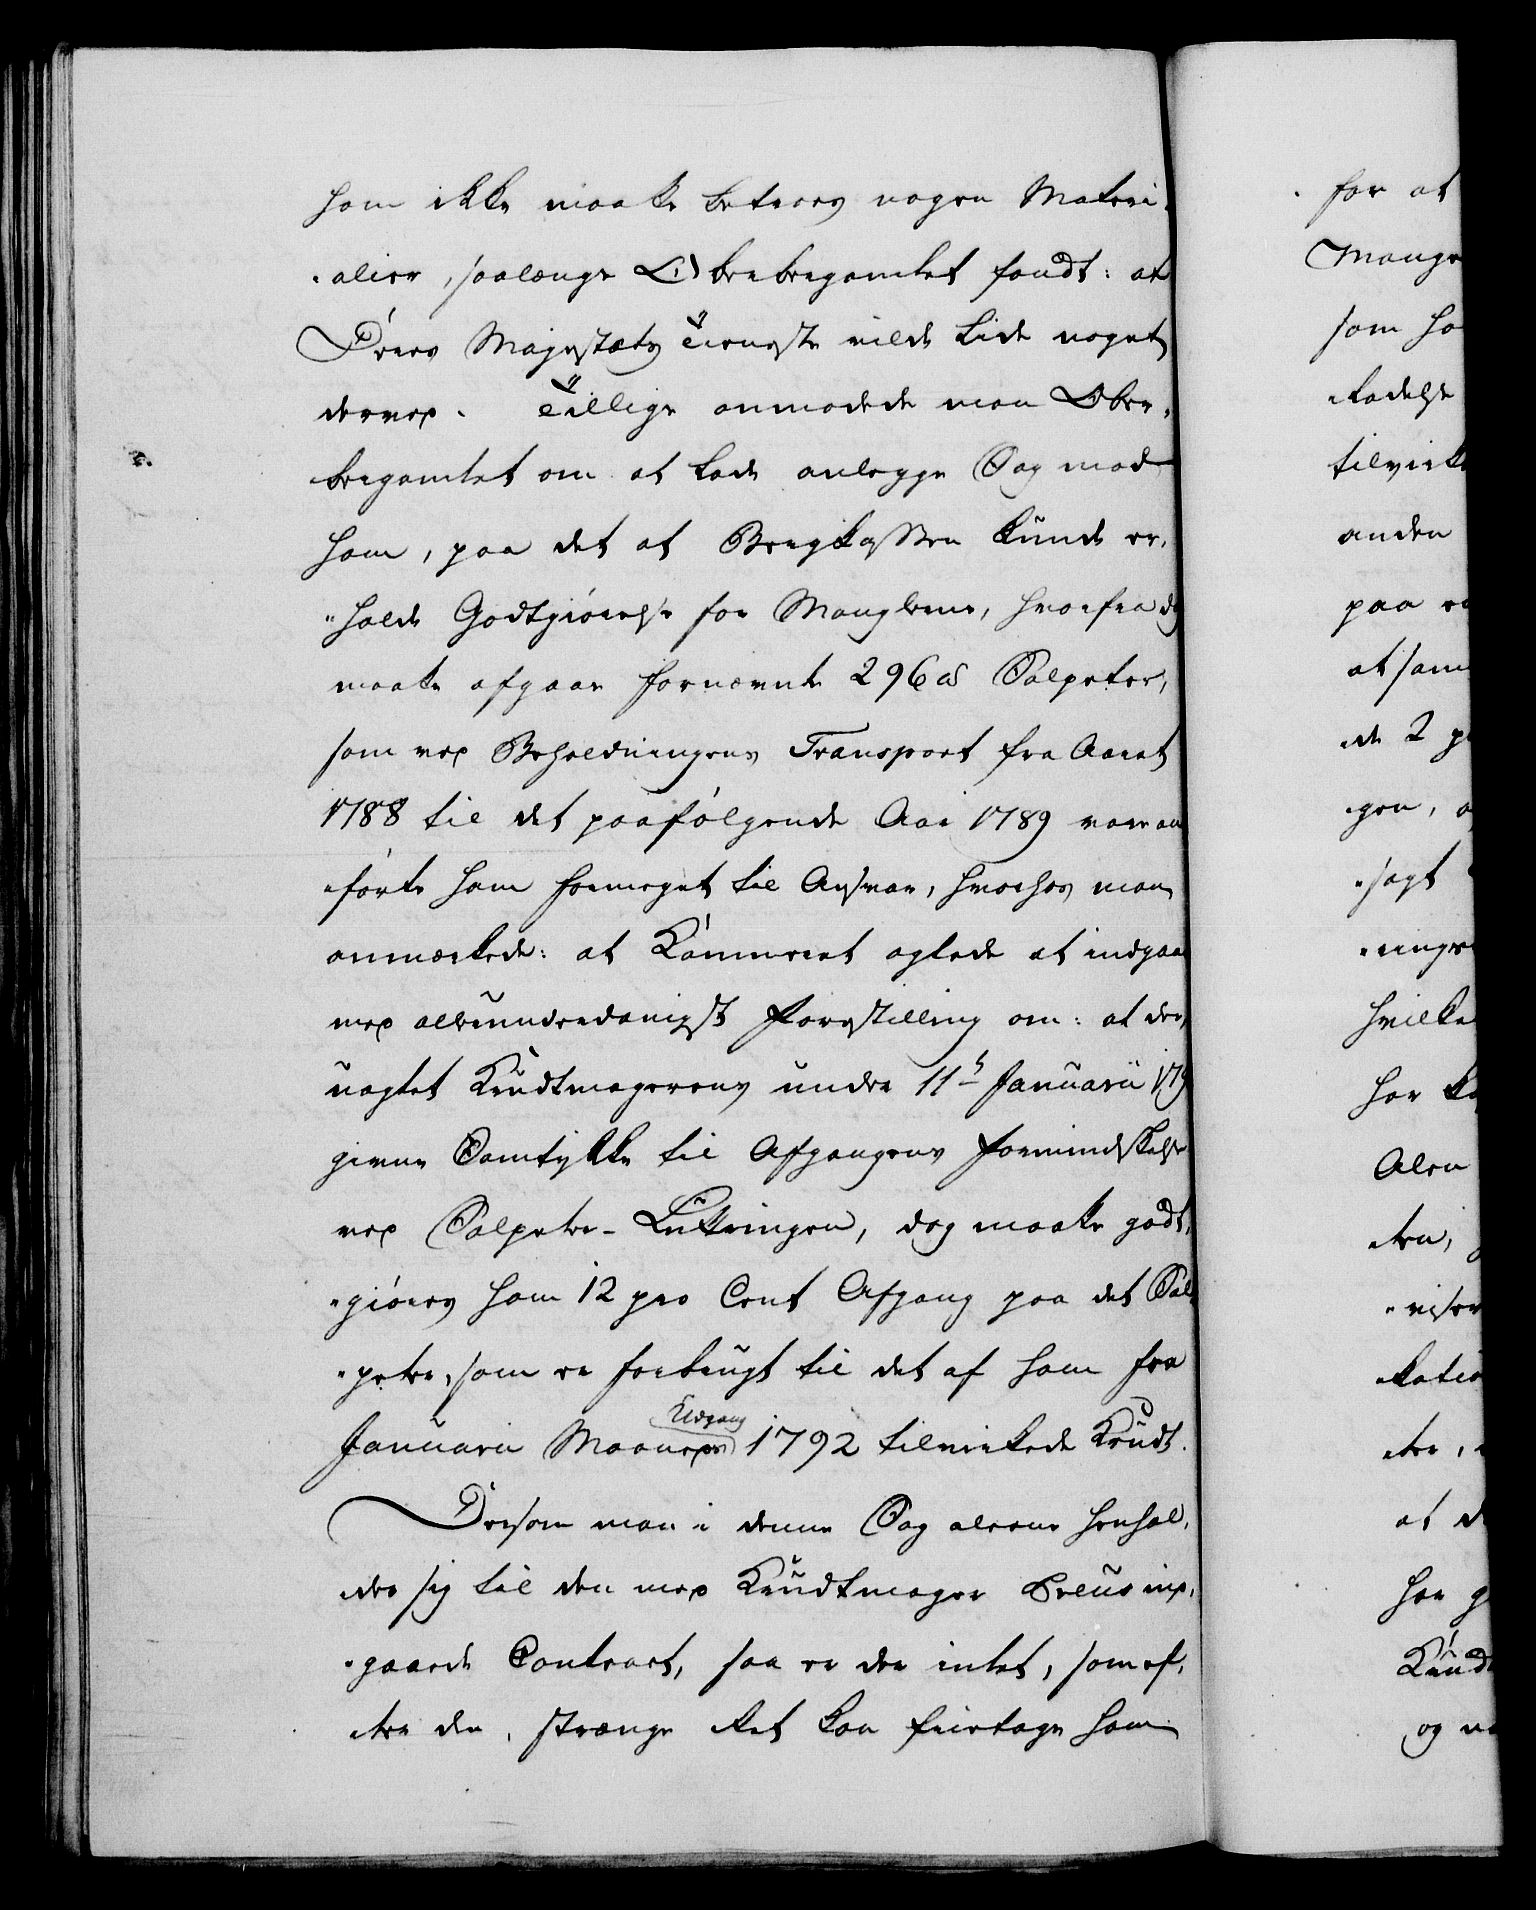 ham ikke maatte betroes nogen Materi-
-alier, saalænge Oberbergamtet fandt: at
Deres Majestæts Tieneste vilde lide noget
derved. Tillige anmodede man Ober-
bergamtet om at lade anlegge Sag mod
ham, paa det at Bergkassen kunde er-
-holde Godtgiørelse for Manglerne, hvorfra dog
maatte afgaae fornævnte 296 ℔ Salpeter,
som ved Beholdningens Transport fra Aaret
1788 til det paafølgende Aar 1789 vare an-
-førte ham formeget til Ansvar, hvorhos man
anmærkede: at Kammeret agtede at indgaae
med allerunderdanigst Forestilling om: at der,
uagtet Krudtmagerens under 11te Januarii 179
givne Samtykke til Afgangens Formindskelse
ved Salpeter-Luttringen, dog maatte godt-
-giøres ham 12 pro Cent Afgang paa det Sal-
-peter, som er forbrugt til det af ham fra
Januarii Maaneds Udgang 1792 tilvirkede Krudt.
Dersom man i denne Sag alleene henhol-
-der sig til den med Krudtmager Creus ind-
-gaaede Contract, saa er der intet, som ef-
-ter den strænge Ret kan fritage ham
for at
Mang
som ha
-kadelse
tilvirk
anden
paa
at sam
de 2
-gen,
-sagt
hvilke
har
Alen
-ter,
-ter,
at d
har g
Krudt
og